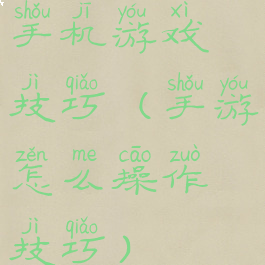 shǒu jī yóu xì
手机游戏
jì qiǎo shǒu yóu
技巧（手游
zěn me cāo zuò
怎么操作
jì qiǎo
技巧）